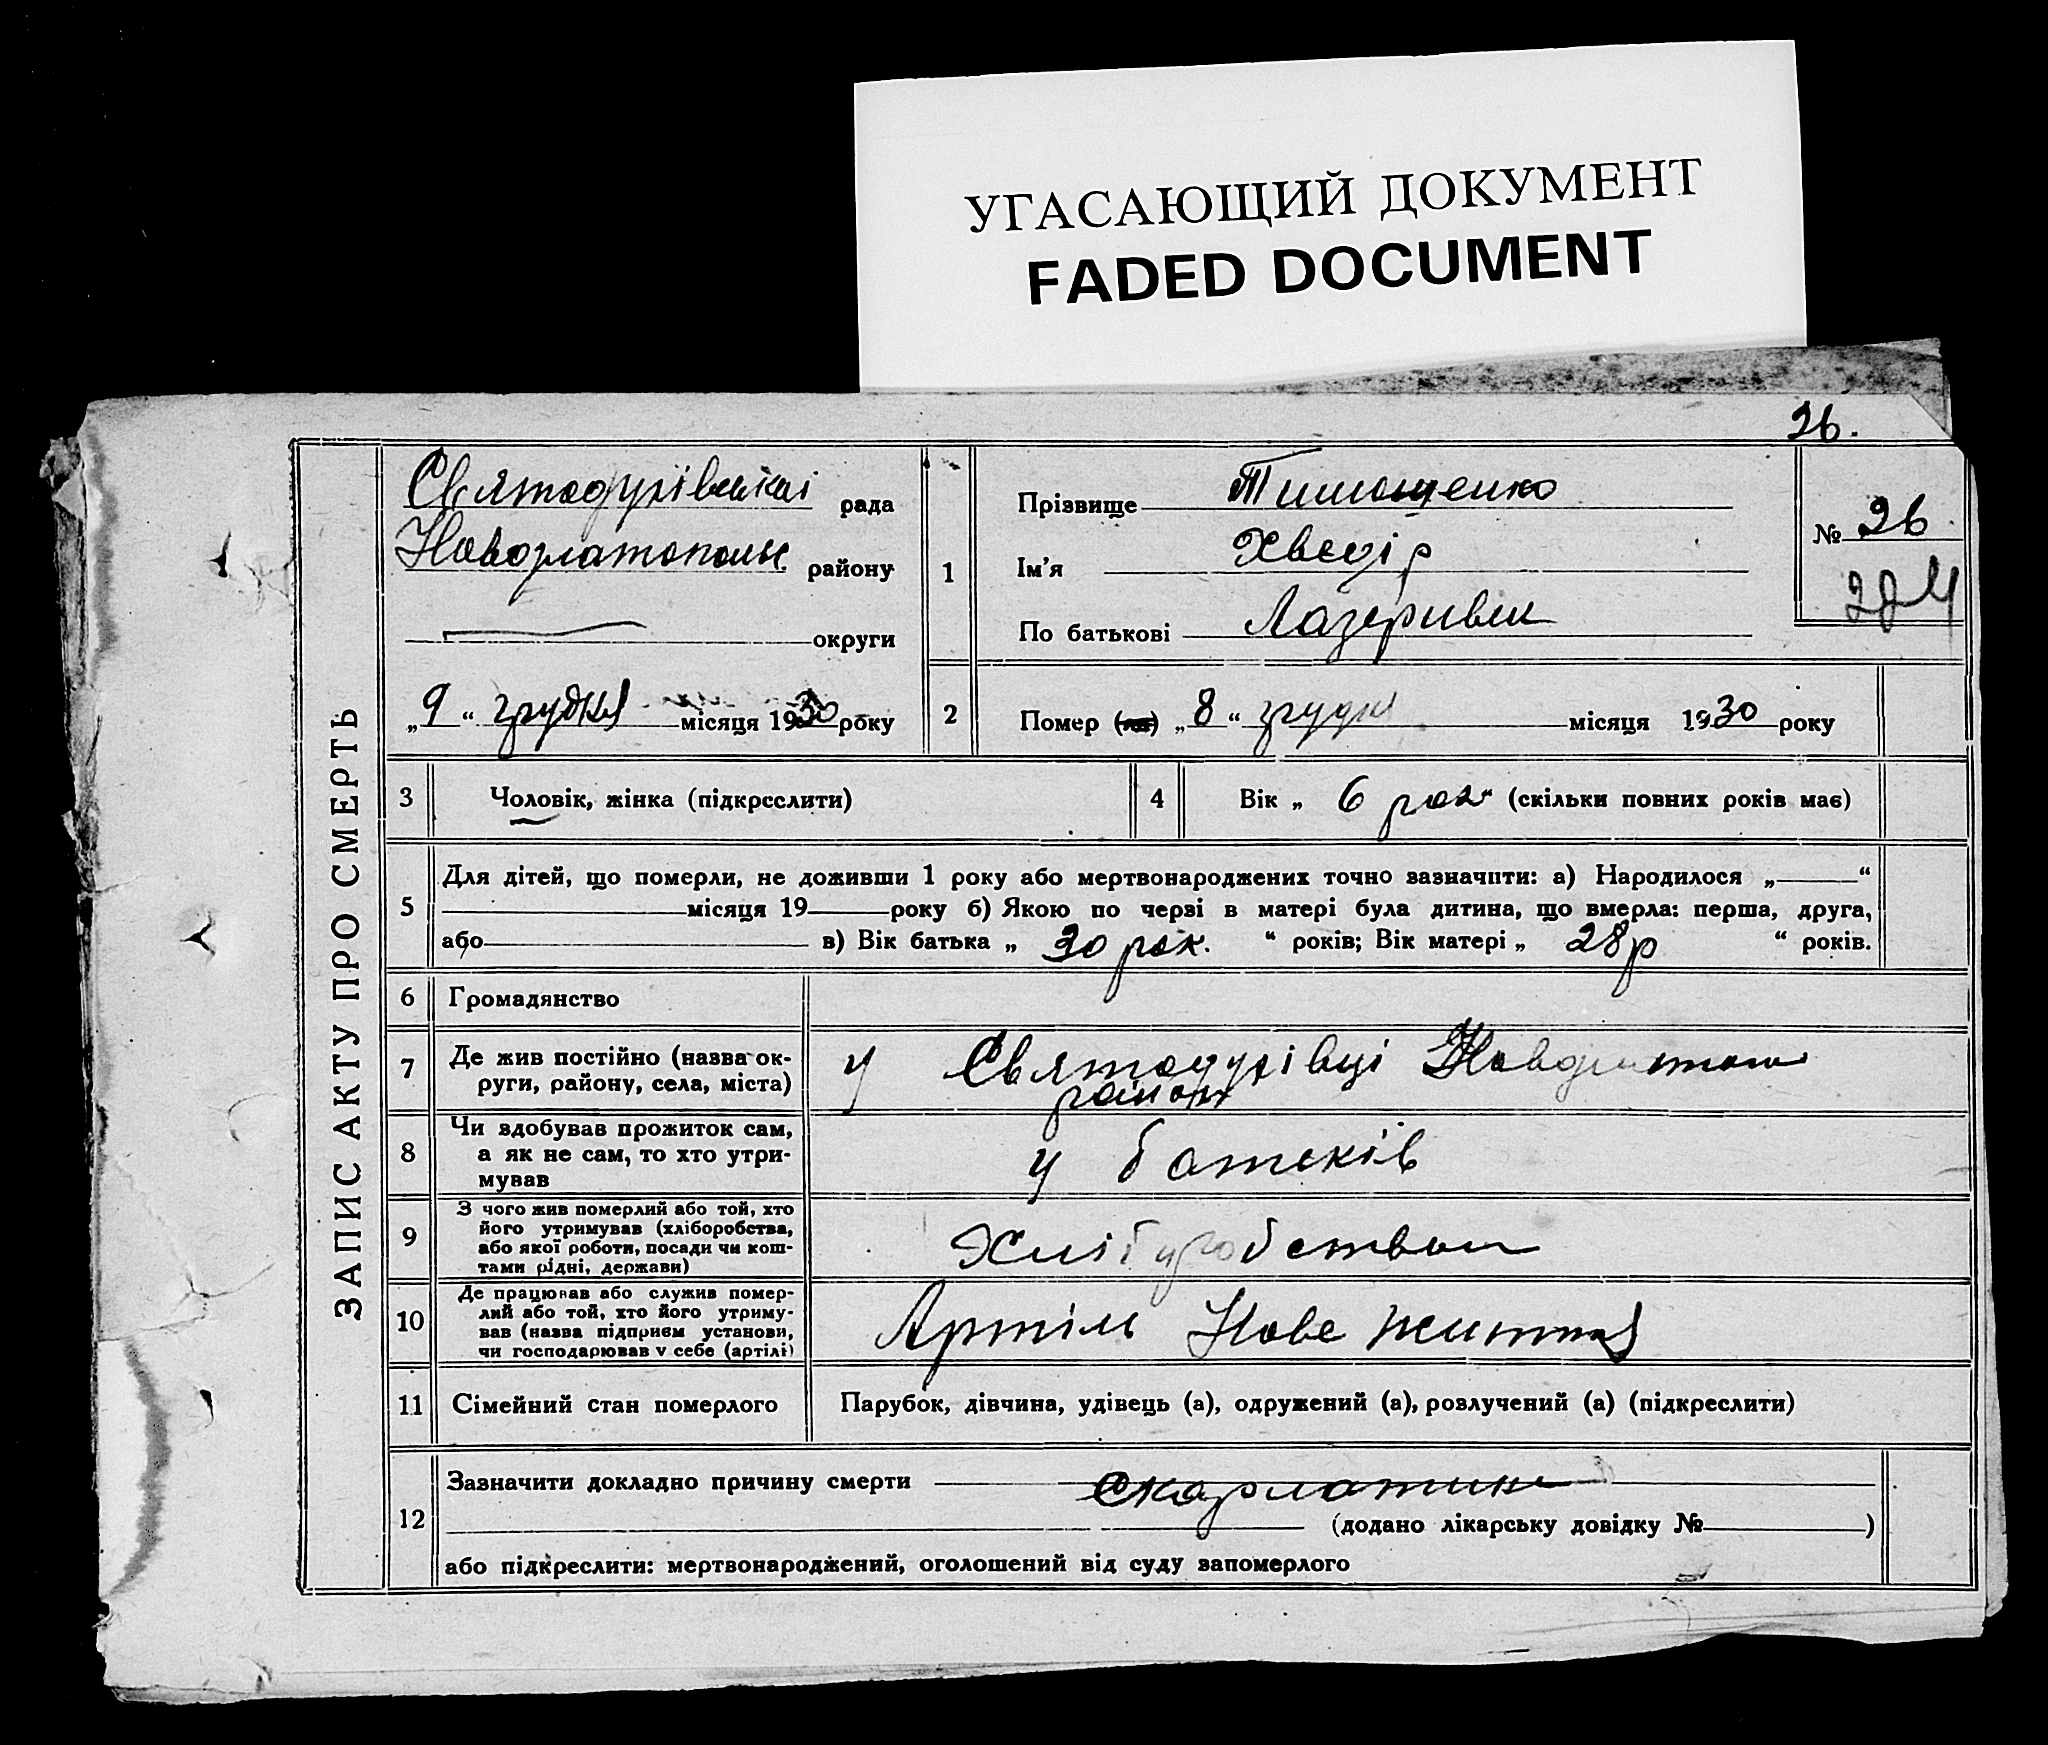 УГАСАЮЩИЙ ДОКУМЕНТ
FADED DOCUMENT
26.
ЗАПИС АКТУ ПРО СМЕРТЬ
рада
району
округи
„9“ грудня місяця 1930 року
1
Прізвище Тимошенко
Ім'я Хведір
По батькові
№ 26
2
Помер (ла) „8“ грудня місяця 1930 року
3
Чоловік, жінка (підкреслити)
4
Вік „ 6 рок (скільки повних років має)
5
Для дітей, що померли, не доживши 1 року або мертвонароджених точно зазначити: а) Народилося „ “
місяця 19 року б) Якою по черві в матері була дитина, що вмерла: перша, друга,
або в) Вік батька „ 30 рок. “ років; Вік матері „ 28 р “ років.
6
Громадянство
7
Де жив постійно (назва ок-
руги, району, села, міста)
у
район
8
Чи здобував прожиток сам,
а як не сам, то хто утри-
мував
у батьків
9
З чого жив померлий або той, хто
його утримував (хліборобства,
або якої роботи, посади чи кош-
тами рідні, держави)
10
Де працював або служив помер-
лий або той, хто його утриму-
вав (назва підприєм установи,
чи господарював у себе (артілі)
Артіль Нове життя
11
Сімейний стан померлого
Парубок, дівчина, удівець (а), одружений (а), розлучений (а) (підкреслити)
12
Зазначити докладно причину смерти скарлатина
(додано лікарську довідку № )
або підкреслити: мертвонароджений, оголошений від суду запомерлого